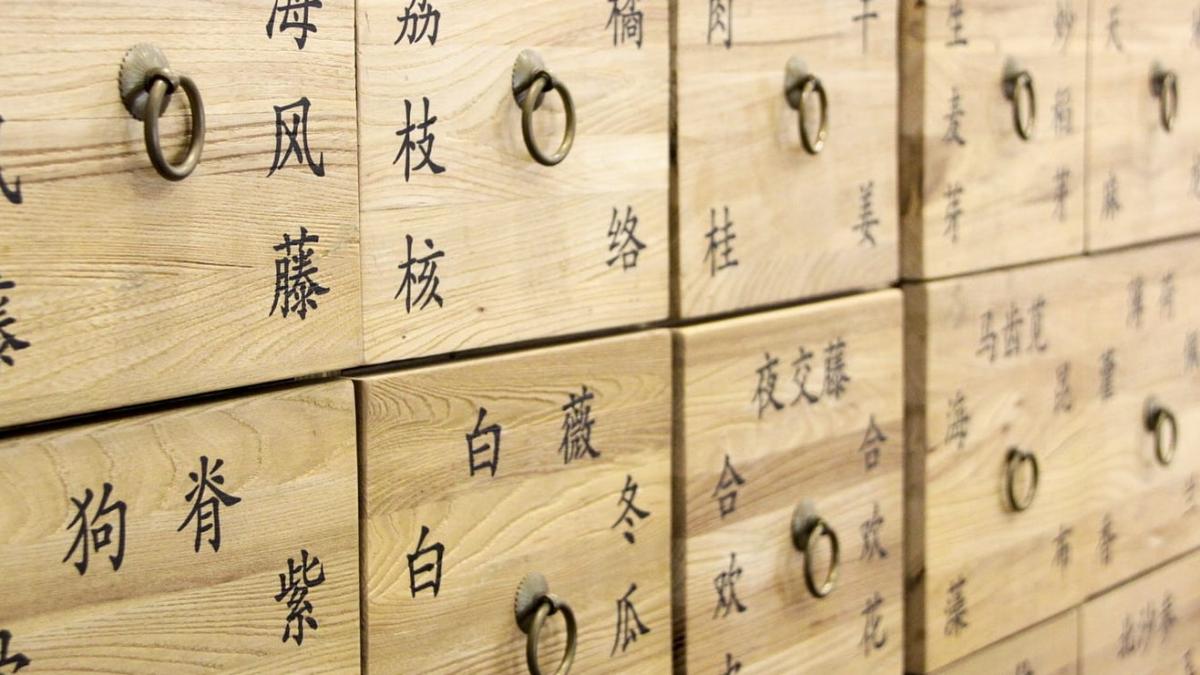 海风藤
荔枝核
橘络
肉桂
干姜
生麦芽
炒稻芽
天麻
狗脊
紫
白薇
白
冬瓜
夜交藤
合欢
合欢花
马齿苋
海藻
昆布
薄荷
香
北沙参